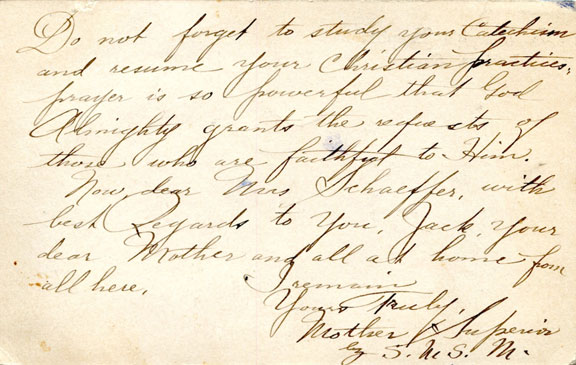 Do not forget to study your Catechism
and resume your Christian practices;
prayer is so powerful that God
Almighty grants the requests of
those who are faithful to Him.
Now, dear Mrs Schaeffer, with
best Regards to you, Jack, your
dear Mother and all at home from
all here,
I remain
Yours Truly,
Mother Superior
by S. M. S. M.